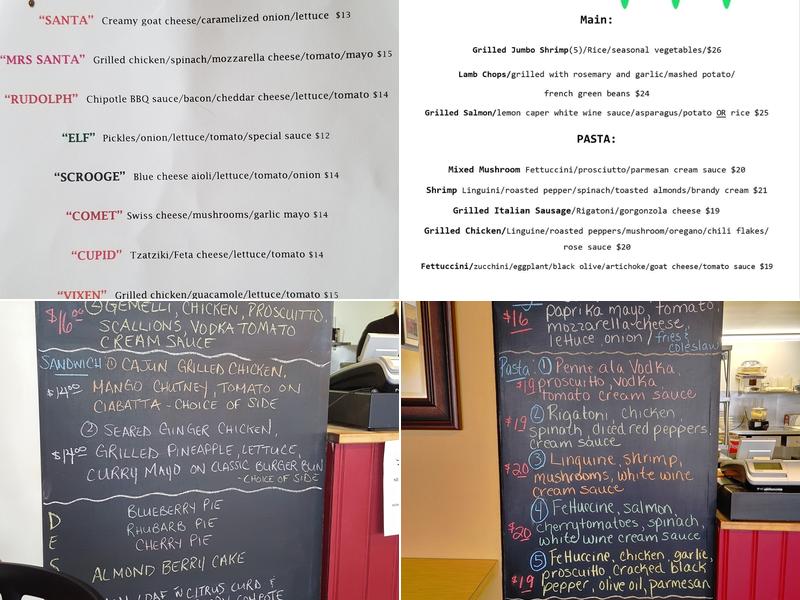 "SANTA" Creamy goat cheese/caramelized onion/lettuce $13
"MRS SANTA" Grilled chicken/spinach/mozzarella cheese/tomato/mayo $15
"RUDOLPH" Chipotle BBQ sauce/bacon/cheddar cheese/lettuce/tomato $14
"ELF" Pickles/onion/lettuce/tomato/special sauce $12
"SCROOGE" Blue cheese aioli/lettuce/tomato/onion $14
"COMET" Swiss cheese/mushrooms/garlic mayo $14
"CUPID" Tzatziki/Feta cheese/lettuce/tomato $14
"VIXEN" Grilled chicken/guacamole/lettuce/tomato $15
Main:
Grilled Jumbo Shrimp(5)/Rice/seasonal vegetables/$26
Lamb Chops/grilled with rosemary and garlic/mashed potato/
french green beans $24
Grilled Salmon/lemon caper white wine sauce/asparagus/potato OR rice $25
PASTA:
Mixed Mushroom Fettuccini/prosciutto/parmesan cream sauce $20
Shrimp Linguini/roasted pepper/spinach/toasted almonds/brandy cream $21
Grilled Italian Sausage/Rigatoni/gorgonzola cheese $19
Grilled Chicken/Linguine/roasted peppers/mushroom/oregano/chili flakes/
rose sauce $20
Fettuccini/zucchini/eggplant/black olive/artichoke/goat cheese/tomato sauce $19
$16.00 ② GEMELLI, CHICKEN, PROSCUITTO,
SCALLIONS, VODKA TOMATO
CREAM SAUCE
SANDWICH ① CAJUN GRILLED CHICKEN,
$14.00 MANGO CHUTNEY, TOMATO ON
CIABATTA - CHOICE OF SIDE
② SEARED GINGER CHICKEN,
$14.00 GRILLED PINEAPPLE, LETTUCE,
CURRY MAYO ON CLASSIC BURGER BUN
- CHOICE OF SIDE
D BLUEBERRY PIE
E RHUBARB PIE
CHERRY PIE
S ALMOND BERRY CAKE
LOAF IN CITRUS CURD &
COMPOTE
$16 paprika mayo tomato,
mozzarella cheese,
lettuce onion / fries &
coleslaw
Pasta: ① Penne ala Vodka,
$19 proscuitto, vodka,
tomato cream sauce
$19 ② Rigatoni, chicken,
spinach, diced red peppers,
cream sauce
③ Linguine, shrimp,
$20 mushrooms, white wine
cream sauce
④ Fettuccine, salmon,
$20 cherrytomatoes, spinach,
white wine cream sauce
⑤ Fettuccine, chicken, garlic,
$19 proscuitto cracked black
pepper, olive oil, parmesan